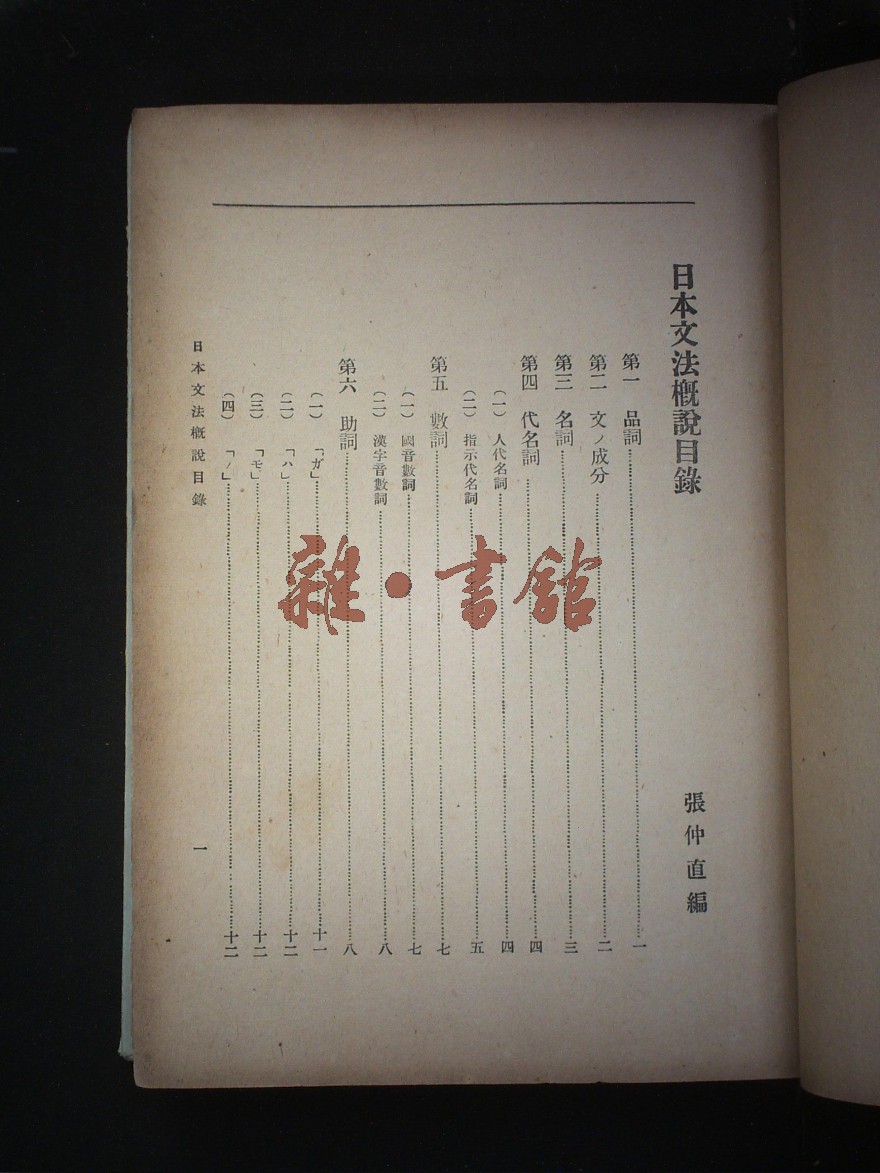 日本文法概說目錄
張仲直編
第一 品詞……一
第二 文ノ成分……二
第三 名詞……三
第四 代名詞……四
(一) 人代名詞……四
(二) 指示代名詞……五
第五 數詞……七
(一) 國音數詞……七
(二) 漢字音數詞……八
第六 助詞……八
(一) 「ガ」……十一
(二) 「ハ」……十二
(三) 「モ」……十二
(四) 「ノ」……十二
日本文法概說目錄 一
雜·書館